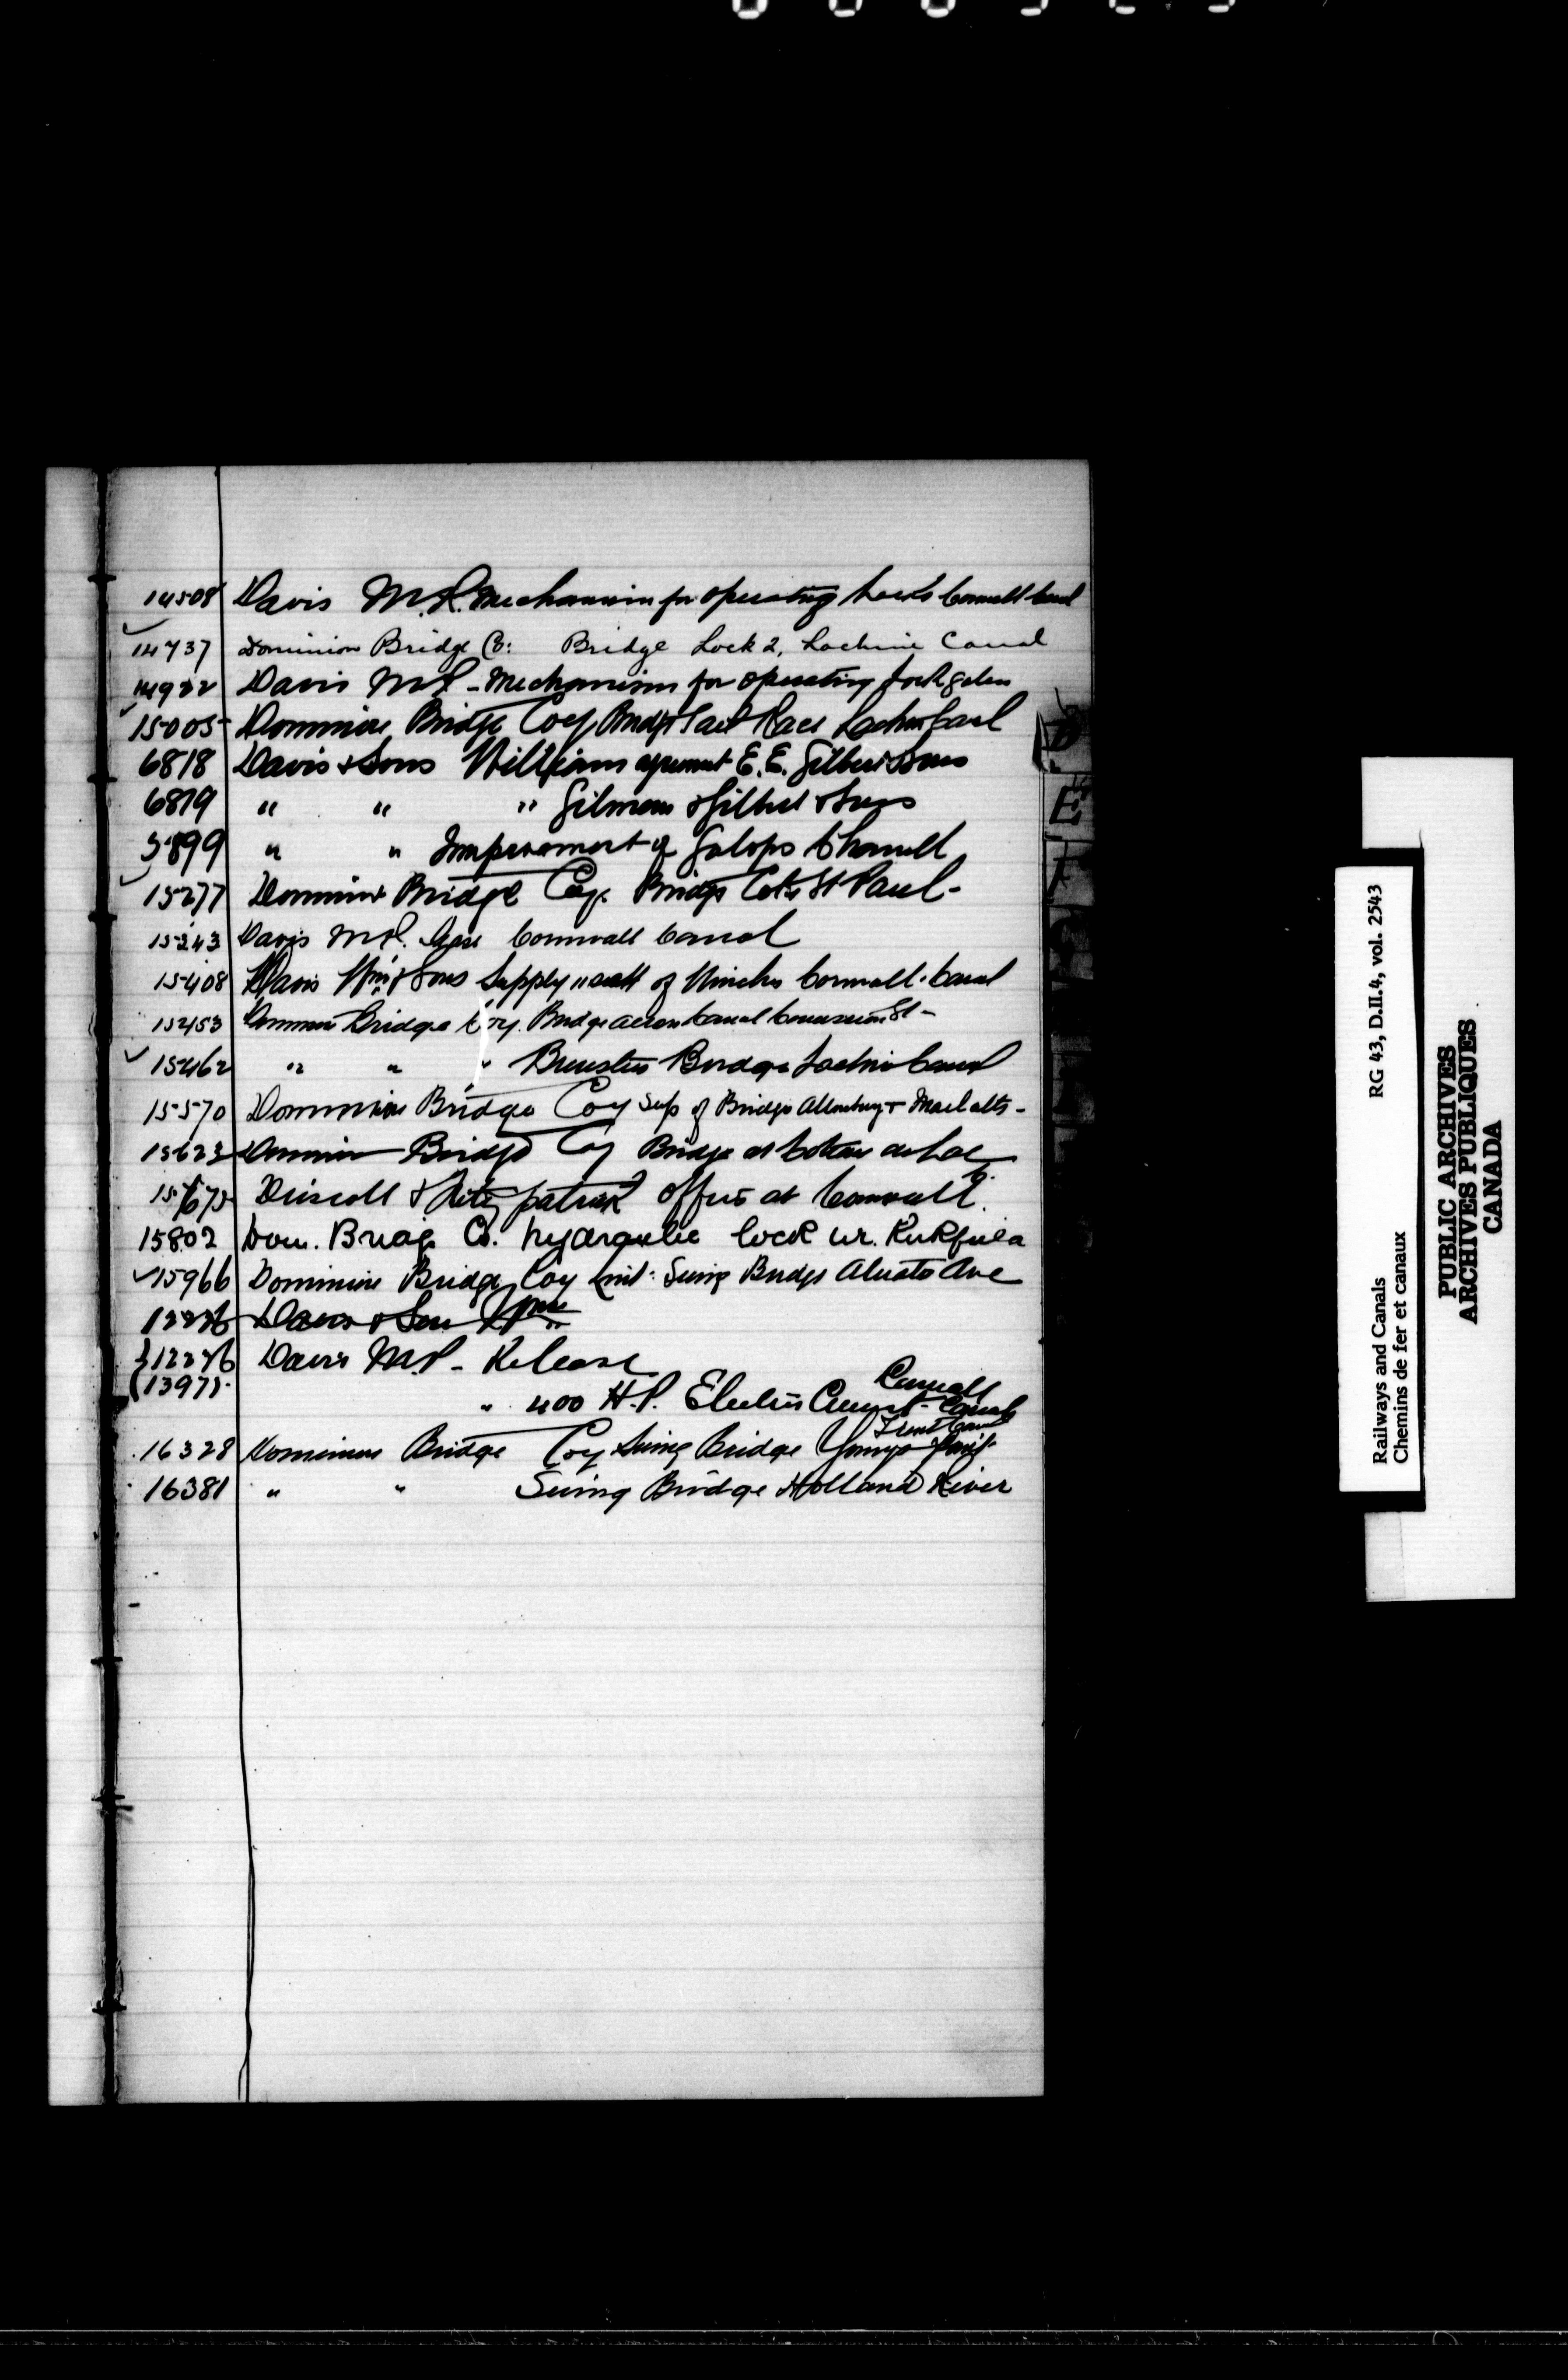 14508 Davis M.P. Mechanism for operating Locks Cornwall Canal
14737 Dominion Bridge Co: Bridge Lock 2, Lachine Canal
14922 Davis M.P. - Mechanism for operating Lock gates
15005 Dominion Bridge Coy Bridge Tail Race Lachine Canal
6818 Davis & Sons William agreement E. E. Gilbert & Sons
6819 " " " Gilmour & Gilbert & Sons
5899 " " Improvement of Galops Channell
15277 Dominion Bridge Coy. Bridge Cote St Paul -
15243 Davis M.P. Cornwall Canal
15408 Davis Wm & Sons Supply of Winches Cornwall Canal
15453 Dominion Bridge Coy. Bridge across Canal Concession St -
15462 " " " Brewsters Bridge Lachine Canal
15570 Dominion Bridge Coy Sup of Bridges Allanburg &
15623 Dominion Bridge Coy Bridge at Coteau du Lac
15675 Driscoll & Fitzpatrick offices at Cornwall
15802 Dom. Bridge Co. hydraulic lock nr. Kirkfield
15966 Dominion Bridge Coy Swing Bridge Atwater Ave
12276 Davis & Son Wm
12276 Davis M.P. - Release
13975 Cornwall
" 400 H.P. Electric Current - Canal
Trent Canal
16328 Dominion Bridge Coy Swing Bridge Youngs Point
16381 " " Swing Bridge Holland River
D
E
F
Railways and Canals RG 43, D.II.4, vol. 2543
Chemins de fer et canaux
PUBLIC ARCHIVES
ARCHIVES PUBLIQUES
CANADA